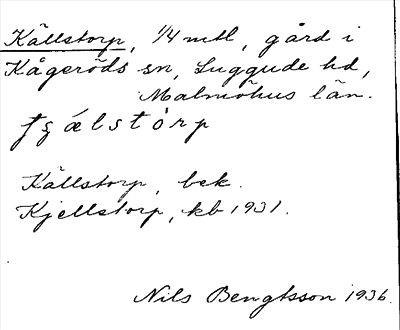 Källstorp, 1/4 mtl, gård i
Kågeröds sn, Luggude hd,
Malmöhus län.
Källstorp, bek.
Kjellstorp, kb 1931.
Nils Bengtsson 1936.